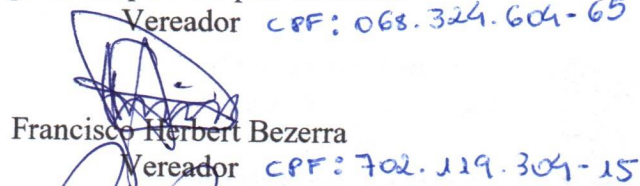 Vereador CPF: 068.324.604-65
Francisco Herbert Bezerra
Vereador CPF: 702.119.304-15